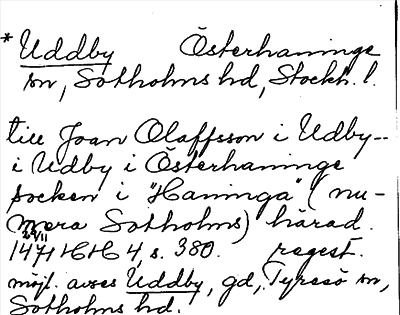 * Uddby Österhaninge
sn, Sotholms hd, Stockh. l.
till Joan Olaffsson i Udby--
i Udby i Österhaninge
socken i "Haninga" (nu-
mera Sotholms) härad.
29/VII
1471 HH 4, s. 380. regest.
möjl. avses Uddby, gd, Tyresö sn,
Sotholms hd.